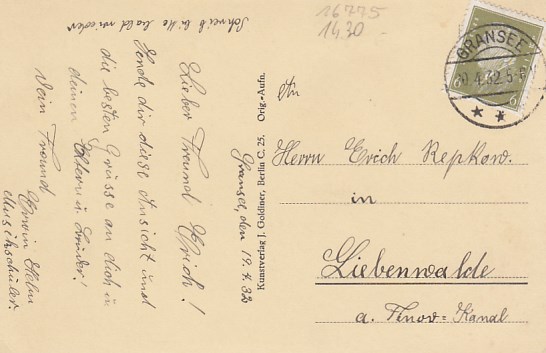 Schreib bitte bald wieder
Gransee, den 19.4.32
Lieber Freund Erich!
Sende dir diese Ansicht und
die besten Grüsse an dich u
deinen Eltern u. Bruder!
Dein Freund
Erwin Helm
Musikschüler.
Kunstverlag J. Goldiner, Berlin C. 25. Orig-Aufn.
16775
1430
GRANSEE
4.32.5-
6
6
An
Herrn Erich Repkow.
in
Liebenwalde
a. Finow-Kanal